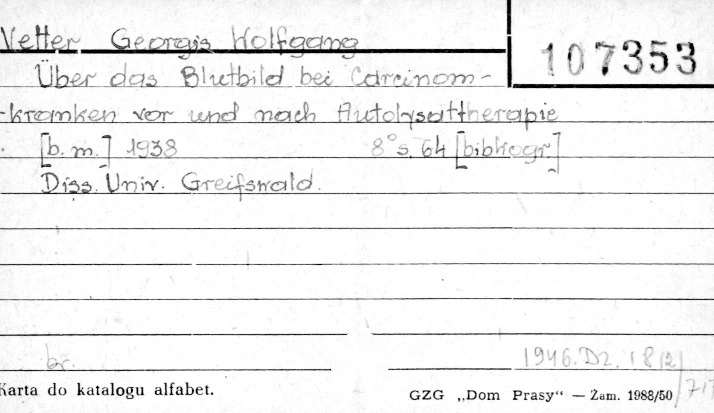 Vetter Georgis Wolfgang
107353
Über das Blutbild bei Carcinom-
-kranken vor und nach Autolysattherapie
[b. m.] 1938 8° s. 64 [bibliogr.]
Diss. Univ. Greifswald.
br.
1946. Dz. 18/2/
717
Karta do katalogu alfabet.
GZG „Dom Prasy“ — Zam. 1988/50